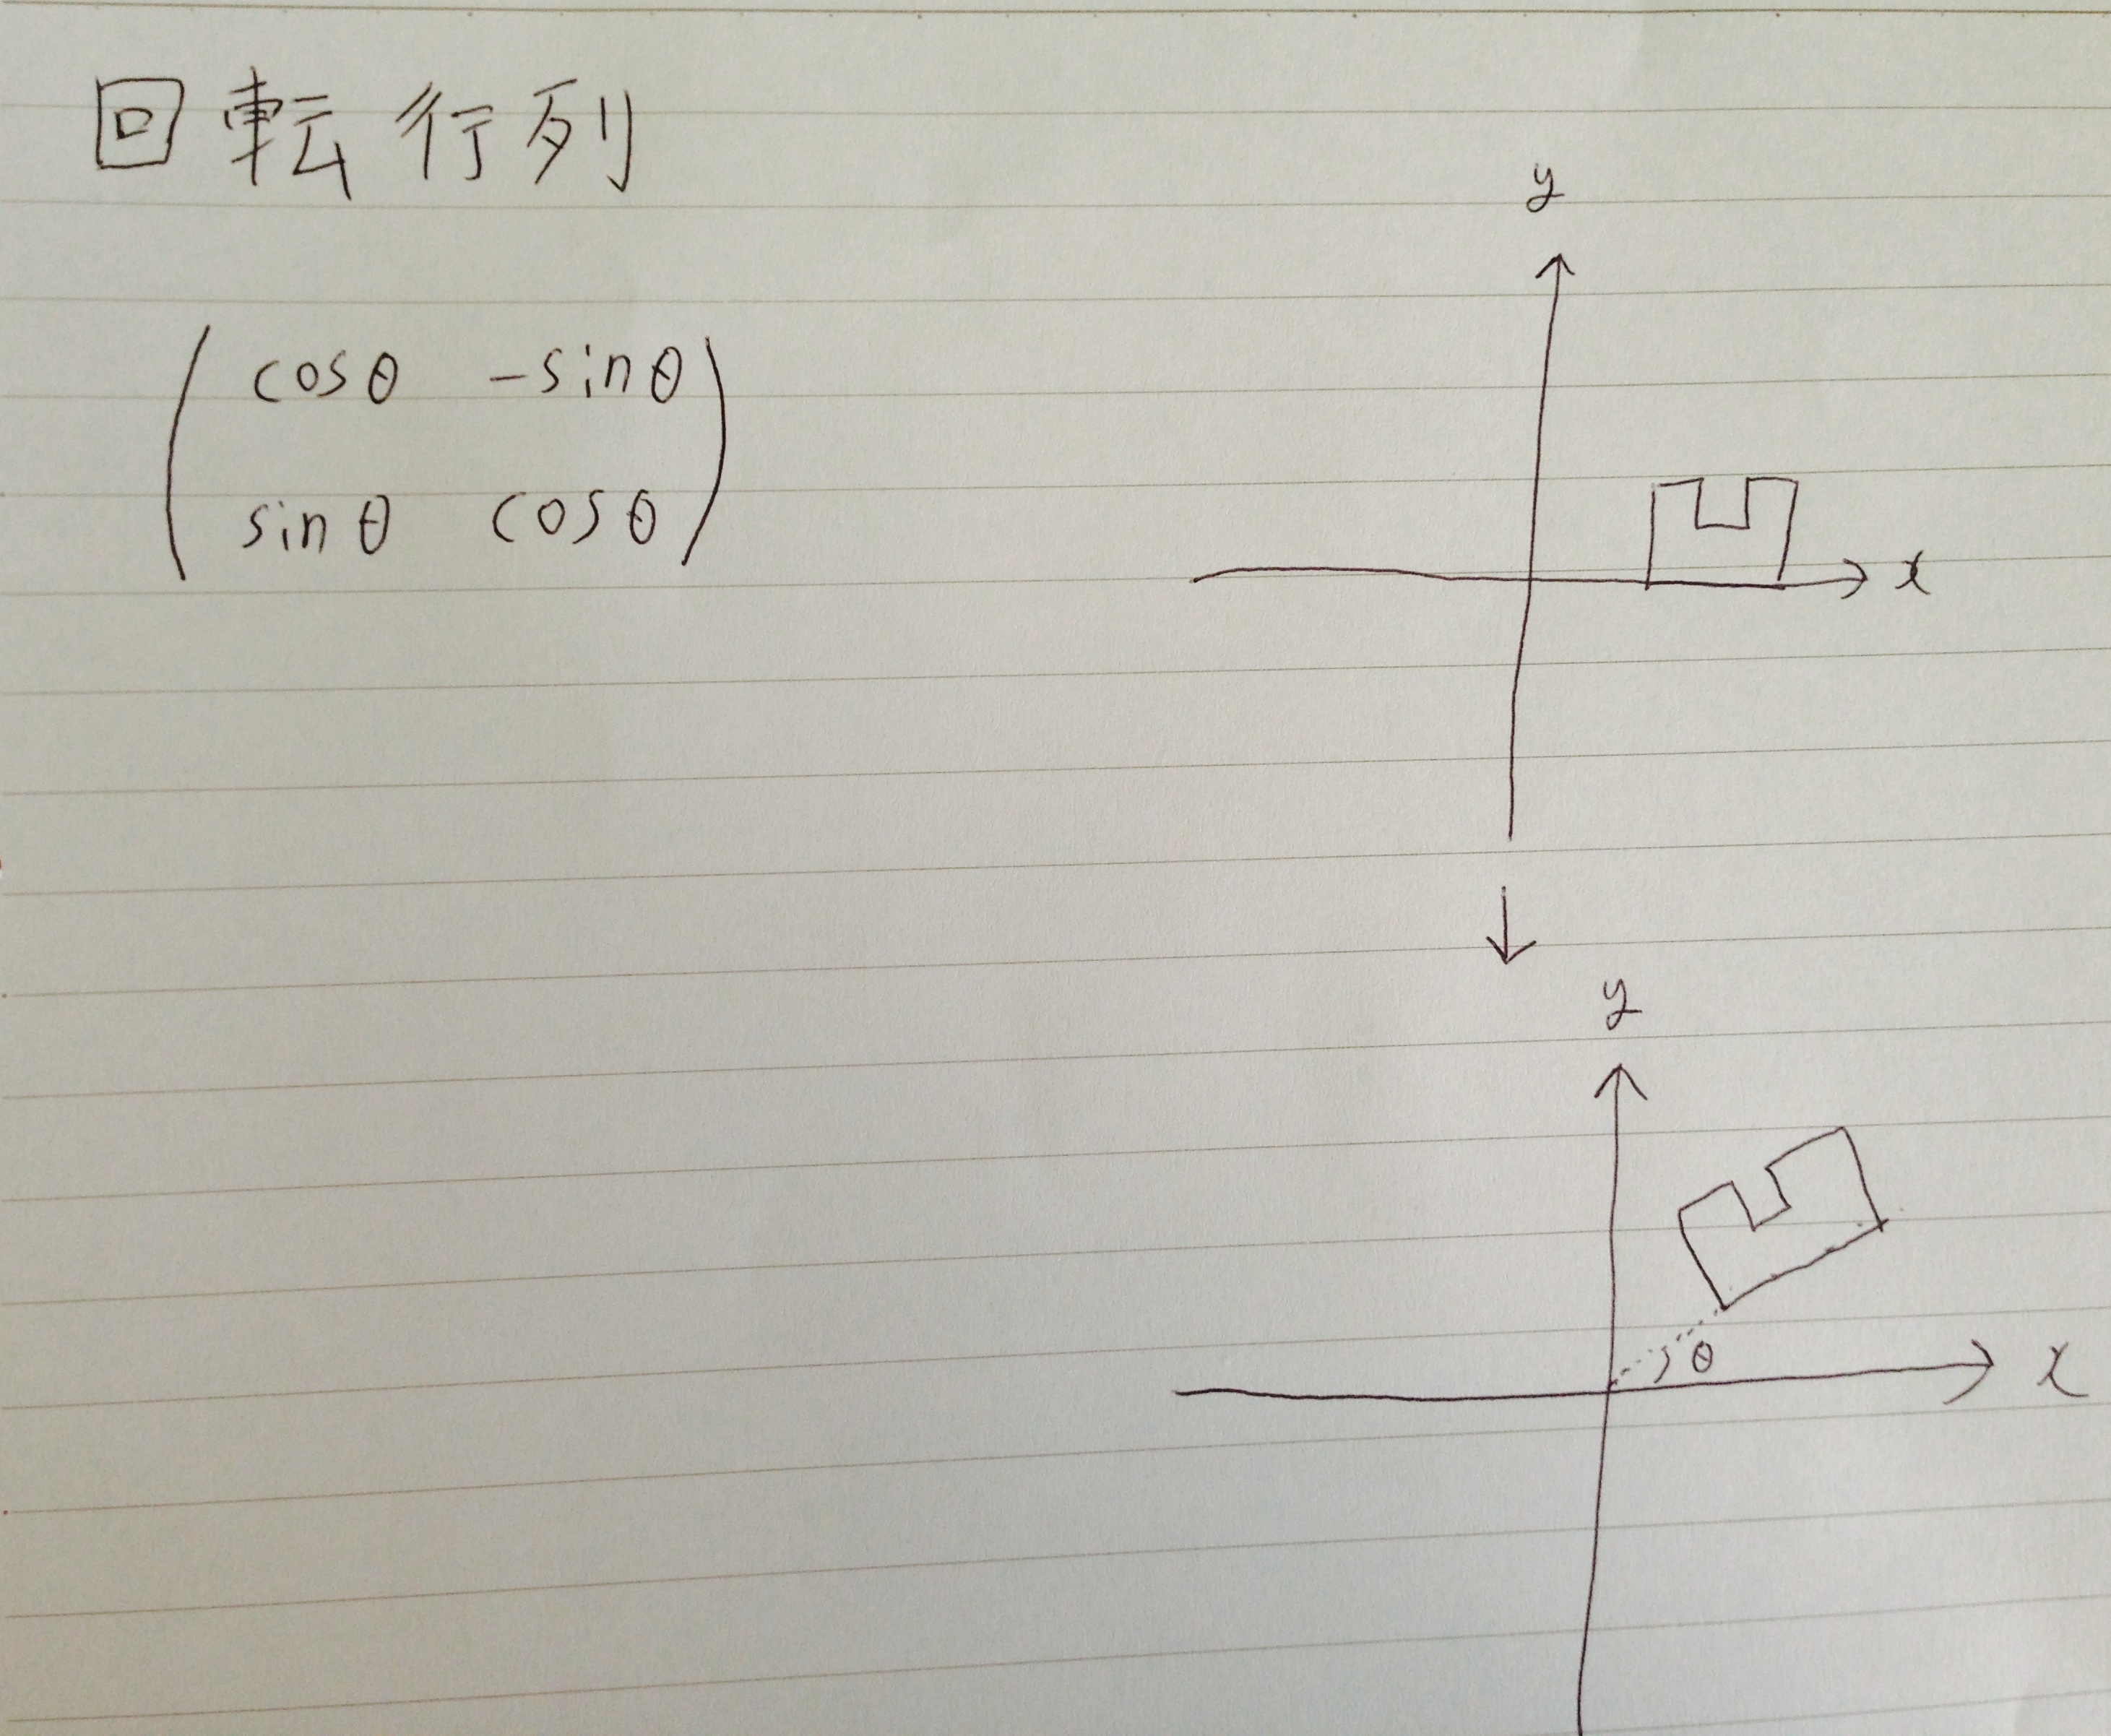 回転行列
cosθ -sinθ
sinθ cosθ
y
x
y
θ
x